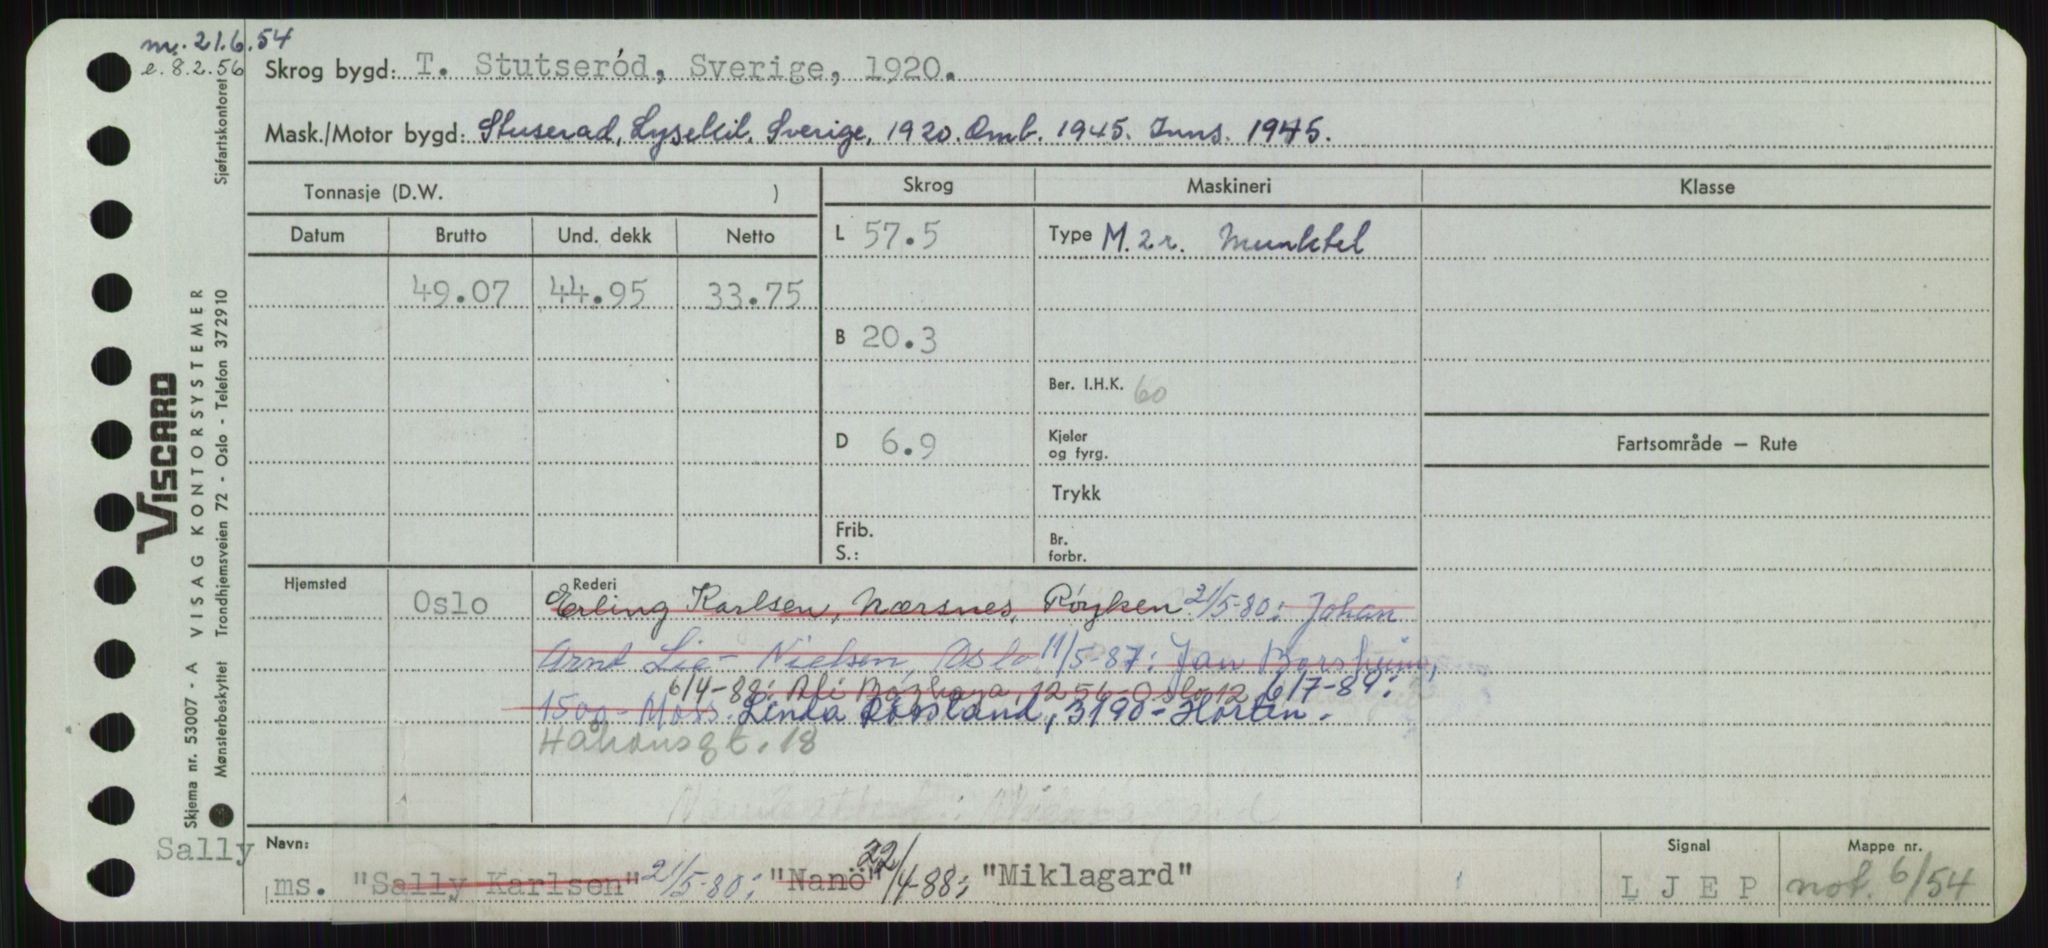 m. 21.6.54
e. 8.2.56
Skrog bygd: T. Stutseród, Sverige, 1920.
Mask./Motor bygd: Stuserad, Lysekil, Sverige, 1920. Omb. 1945. Inns. 1945.
Tonnasje (D.W. )
Skrog
Maskineri
Klasse
Datum Brutto Und. dekk Netto
L 57.5
Type M. 2 r. Munktel
49.07 44.95 33.75
B 20.3
Ber. I.H.K. 60
D 6.9
Kjeler
og fyrg.
Fartsområde — Rute
Trykk
Frib.
S.:
Br.
forbr.
Hjemsted
Rederi
Oslo
Erling Karlsen, Nærsnes, Røyken 21/5-80: Johan
Arnt Lie-Nielsen, Oslo 11/5-87: Jan Borsheim,
6/4-88: Afi 1256-Oslo 12 6/7-89:
1500-Moss. Linda Røssland, 3190-Horten.
Håkonsgt. 18
Navn:
Signal
Mappe nr.
Sally
ms. "Sally Karlsen" 21/5-80: "Nanö" 22/4-88: "Miklagard"
L J E P
not. 6/54
VISCARD
Skjema nr. 53007 - A VISAG KONTORSYSTEMER
Mønsterbeskyttet Trondhjemsveien 72 - Oslo - Telefon 372910
Sjøfartskontoret